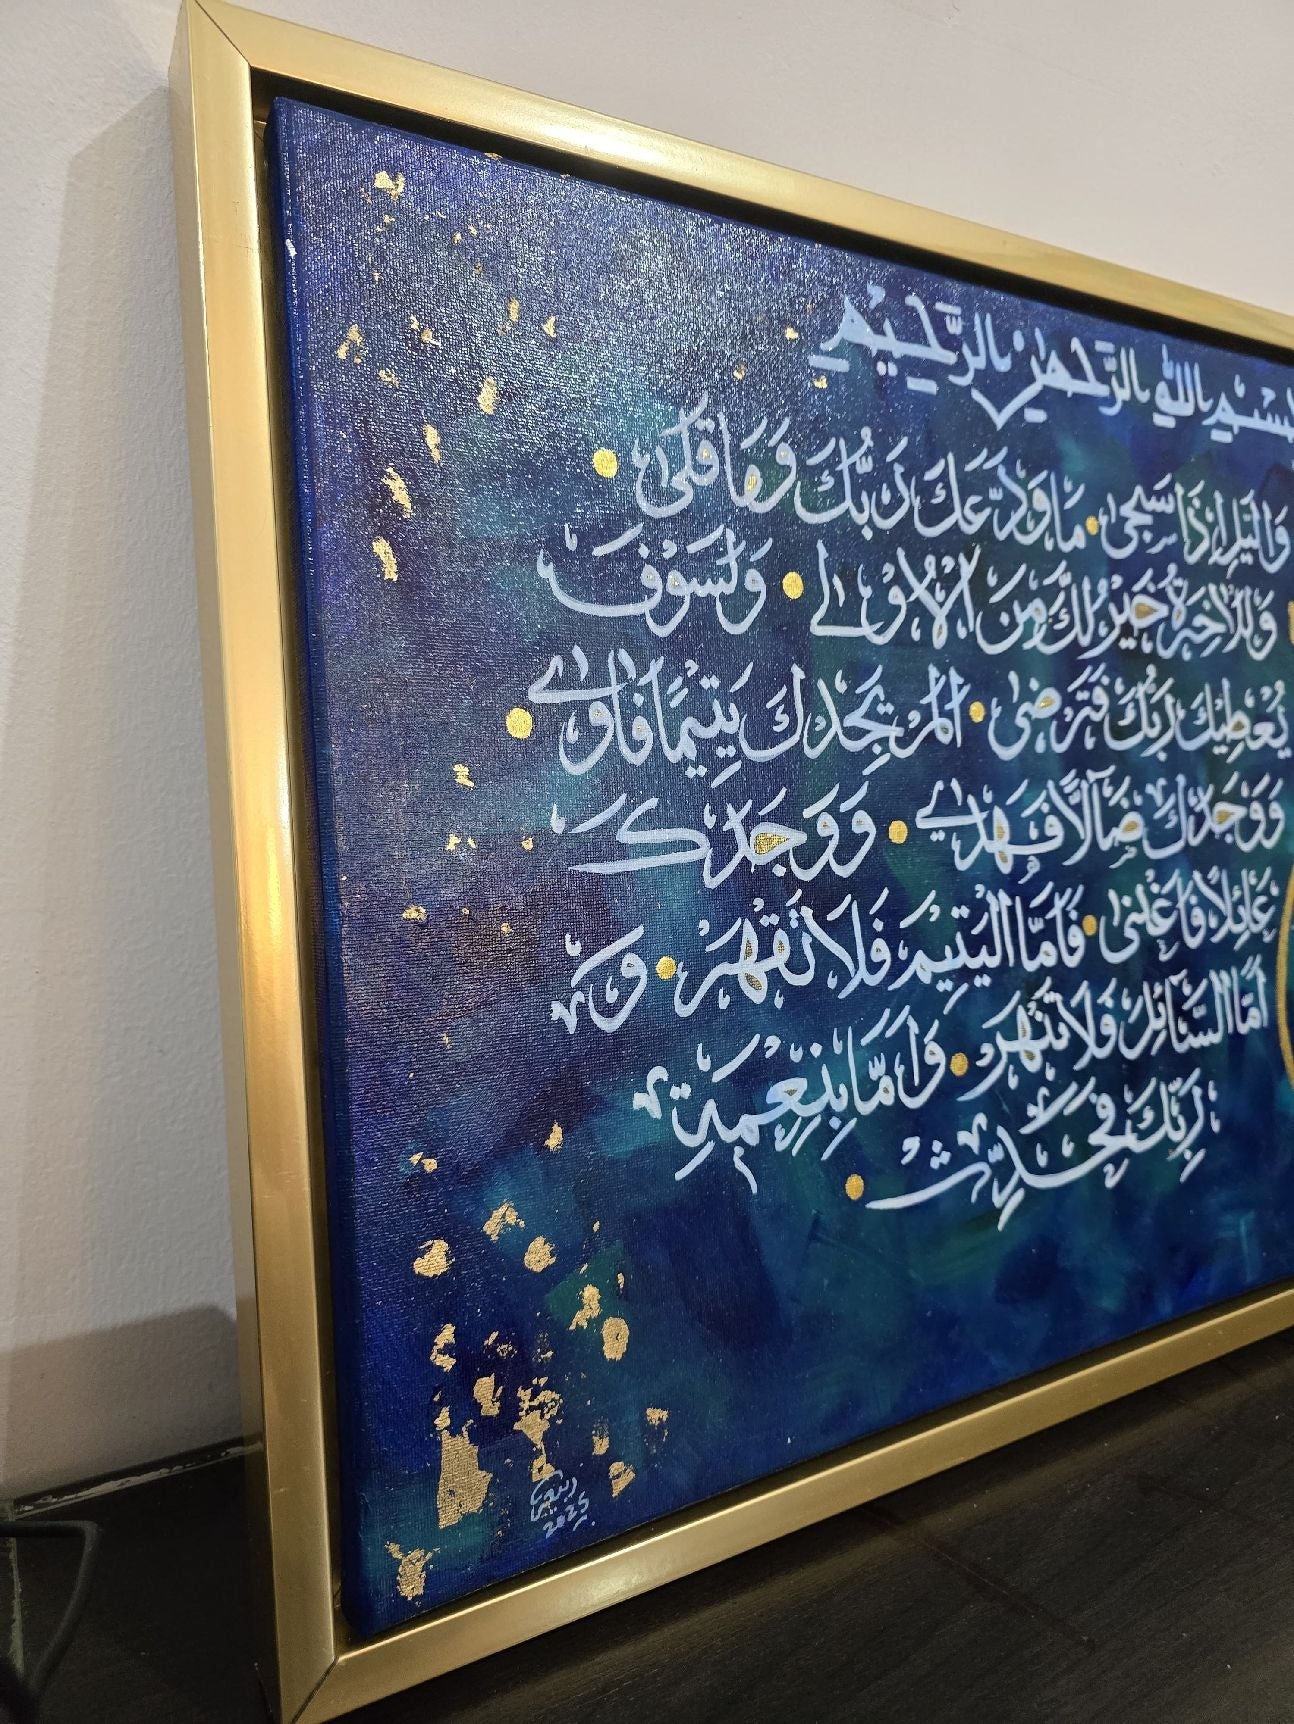 بسم الله الرحمن الرحيم
وَاليَلِ إِذَا سَجى مَا وَدَّعَكَ رَبُّكَ وَمَا قَلَى
وَللاخِرَةُ خَيْرٌ لَكَ مِنَ الاُوْلى وَلَسَوْفَ
يُعْطِيكَ رَبُّكَ فَتَرضى المْ يَجِدْكَ يَتِيْمًا فَاوٰى
وَوَجَدَكَ ضَآلًا فَهَدٰى وَوَجَدَكَ
عَائِلاً فَاغْنى فَامَّا اليَتِيْمَ فَلَا تَقْهَرْ وَ
اَمَّا السَّائِلَ فَلَا تَنْهَرْ وَاَمَّا بِنِعْمَةِ
رَبِّكَ فَحَدِّث
2025